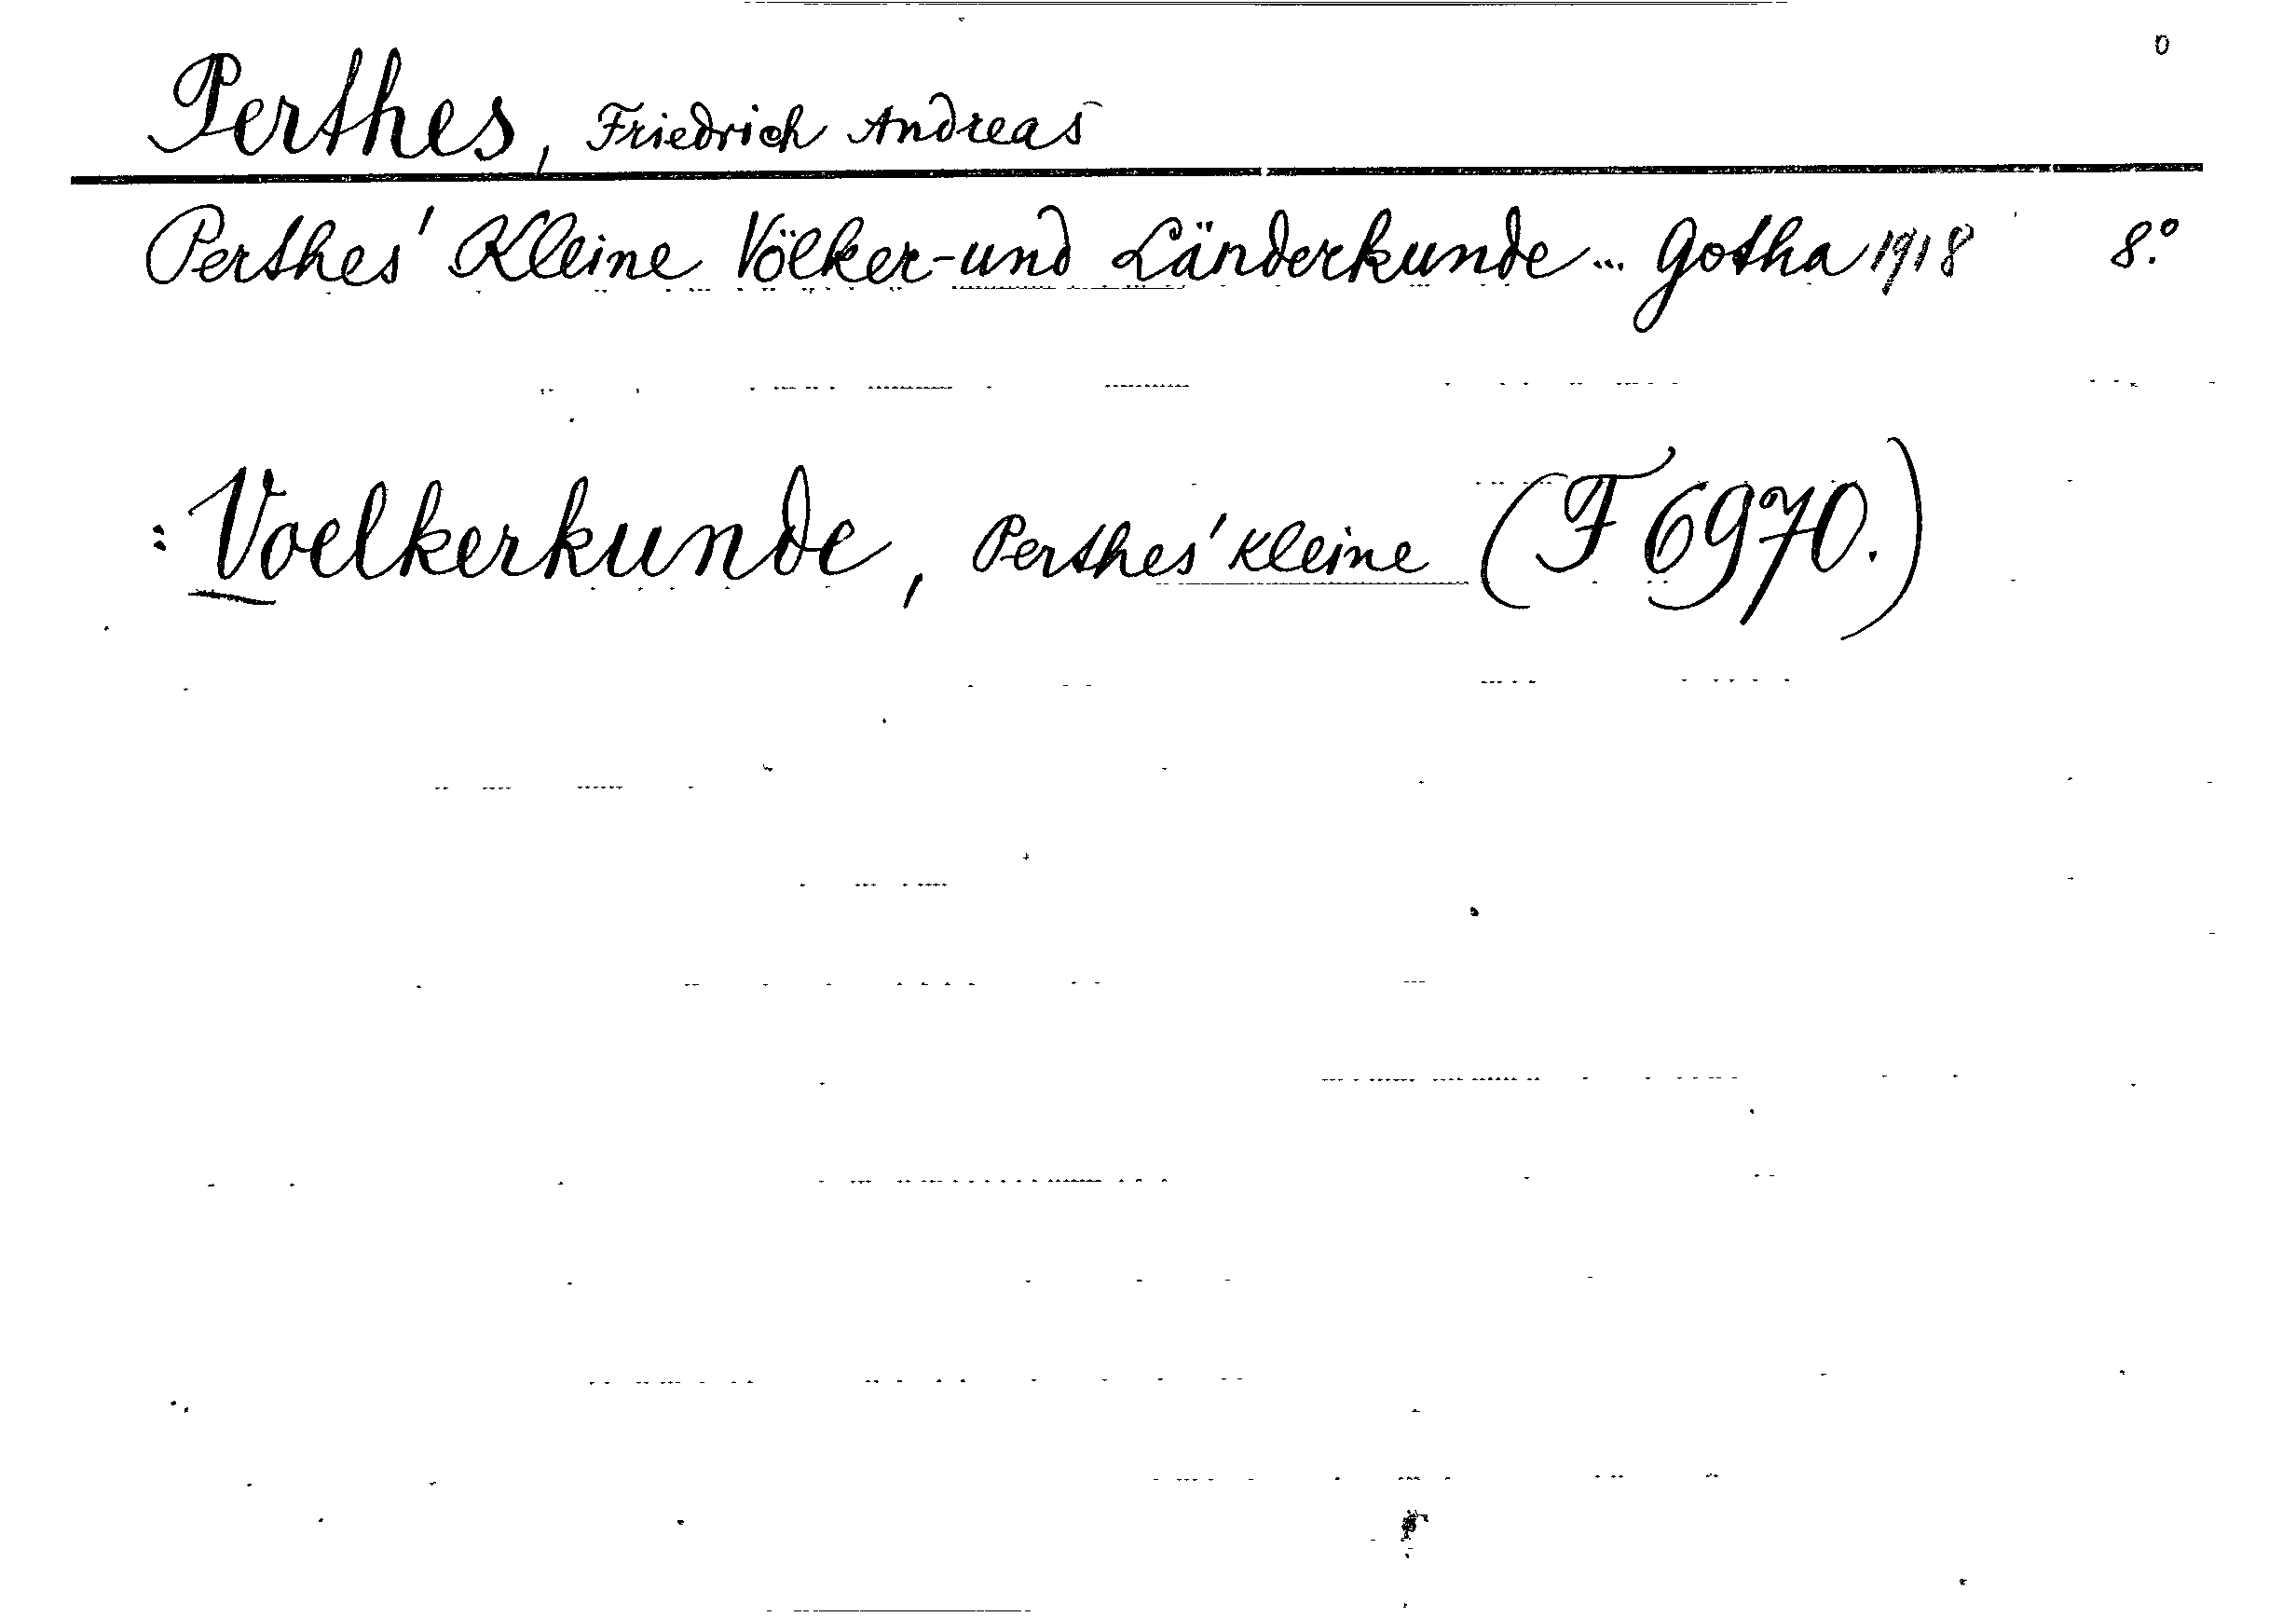 Perthes, Friedrich Andreas
Perthes' Kleine Völker-und Länderkunde... Gotha 1918 8.°
: Voelkerkunde, Perthes' Kleine (F 6970.)